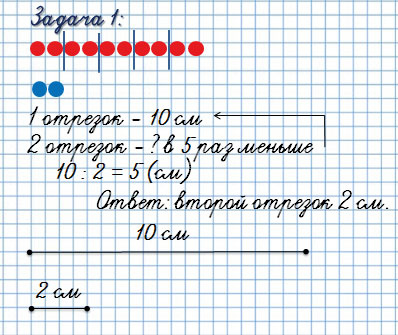 Задача 1:
1 отрезок – 10 см
2 отрезок – ? в 5 раз меньше
10 : 2 = 5 (см)
Ответ: второй отрезок 2 см.
10 см
2 см